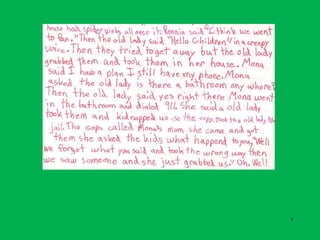 house had spider webs all over it. Ronnie said "I think we went
to far." Then the old lady said "Hello Children" in a creepy
voice. Then they tried to get away but the old lady
grabbed them and took them in her house. Mona
said I have a plan I still have my phone. Mona
asked the old lady is there a bathroom any where?
Then the old lady said, yes right there Mona went
in the bathroom and dialed 911. She said a old lady
took them and kidnapped us. so the cops took the old lady to
jail. The cops called Mona's mom, she came and got
them she asked the kids what happend to you, "Well
we forgot what you said and took the wrong way then
we saw someone and she just grabbed us." Oh. Well